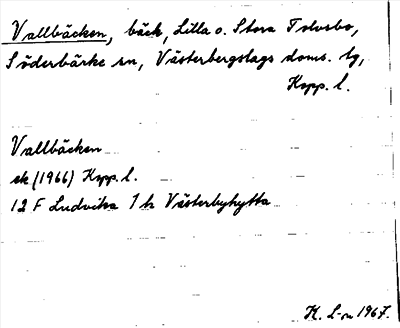 Vallbäcken, bäck, Lilla o. Stora Tolvsbo,
Söderbärke sn, Västerbergslags doms. tg,
Kopp. l.
Vallbäcken
ek (1966) Kopp. l.
12 F Ludvika 1 h Västerbyhytta
K. L-n 1967.